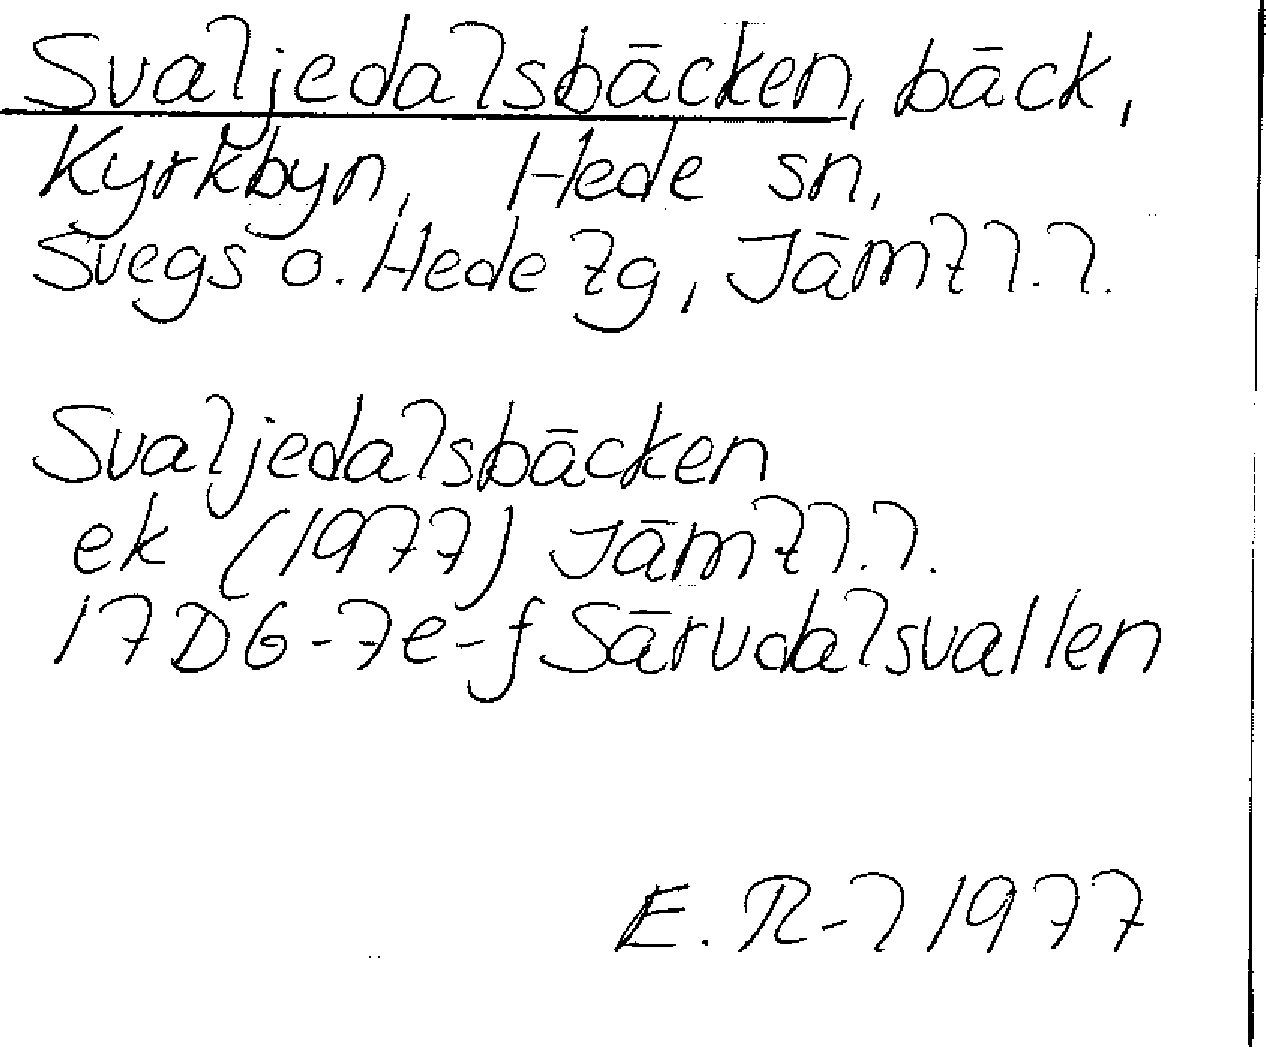 Svaljedalsbäcken, bäck,
Kyrkbyn, Hede sn,
Svegs o. Hede tg, Jämtl.l.
Svaljedalsbäcken
ek (1977) Jämtl.l.
17D6-7e-f Särvdalsvallen
E. R-l 1977